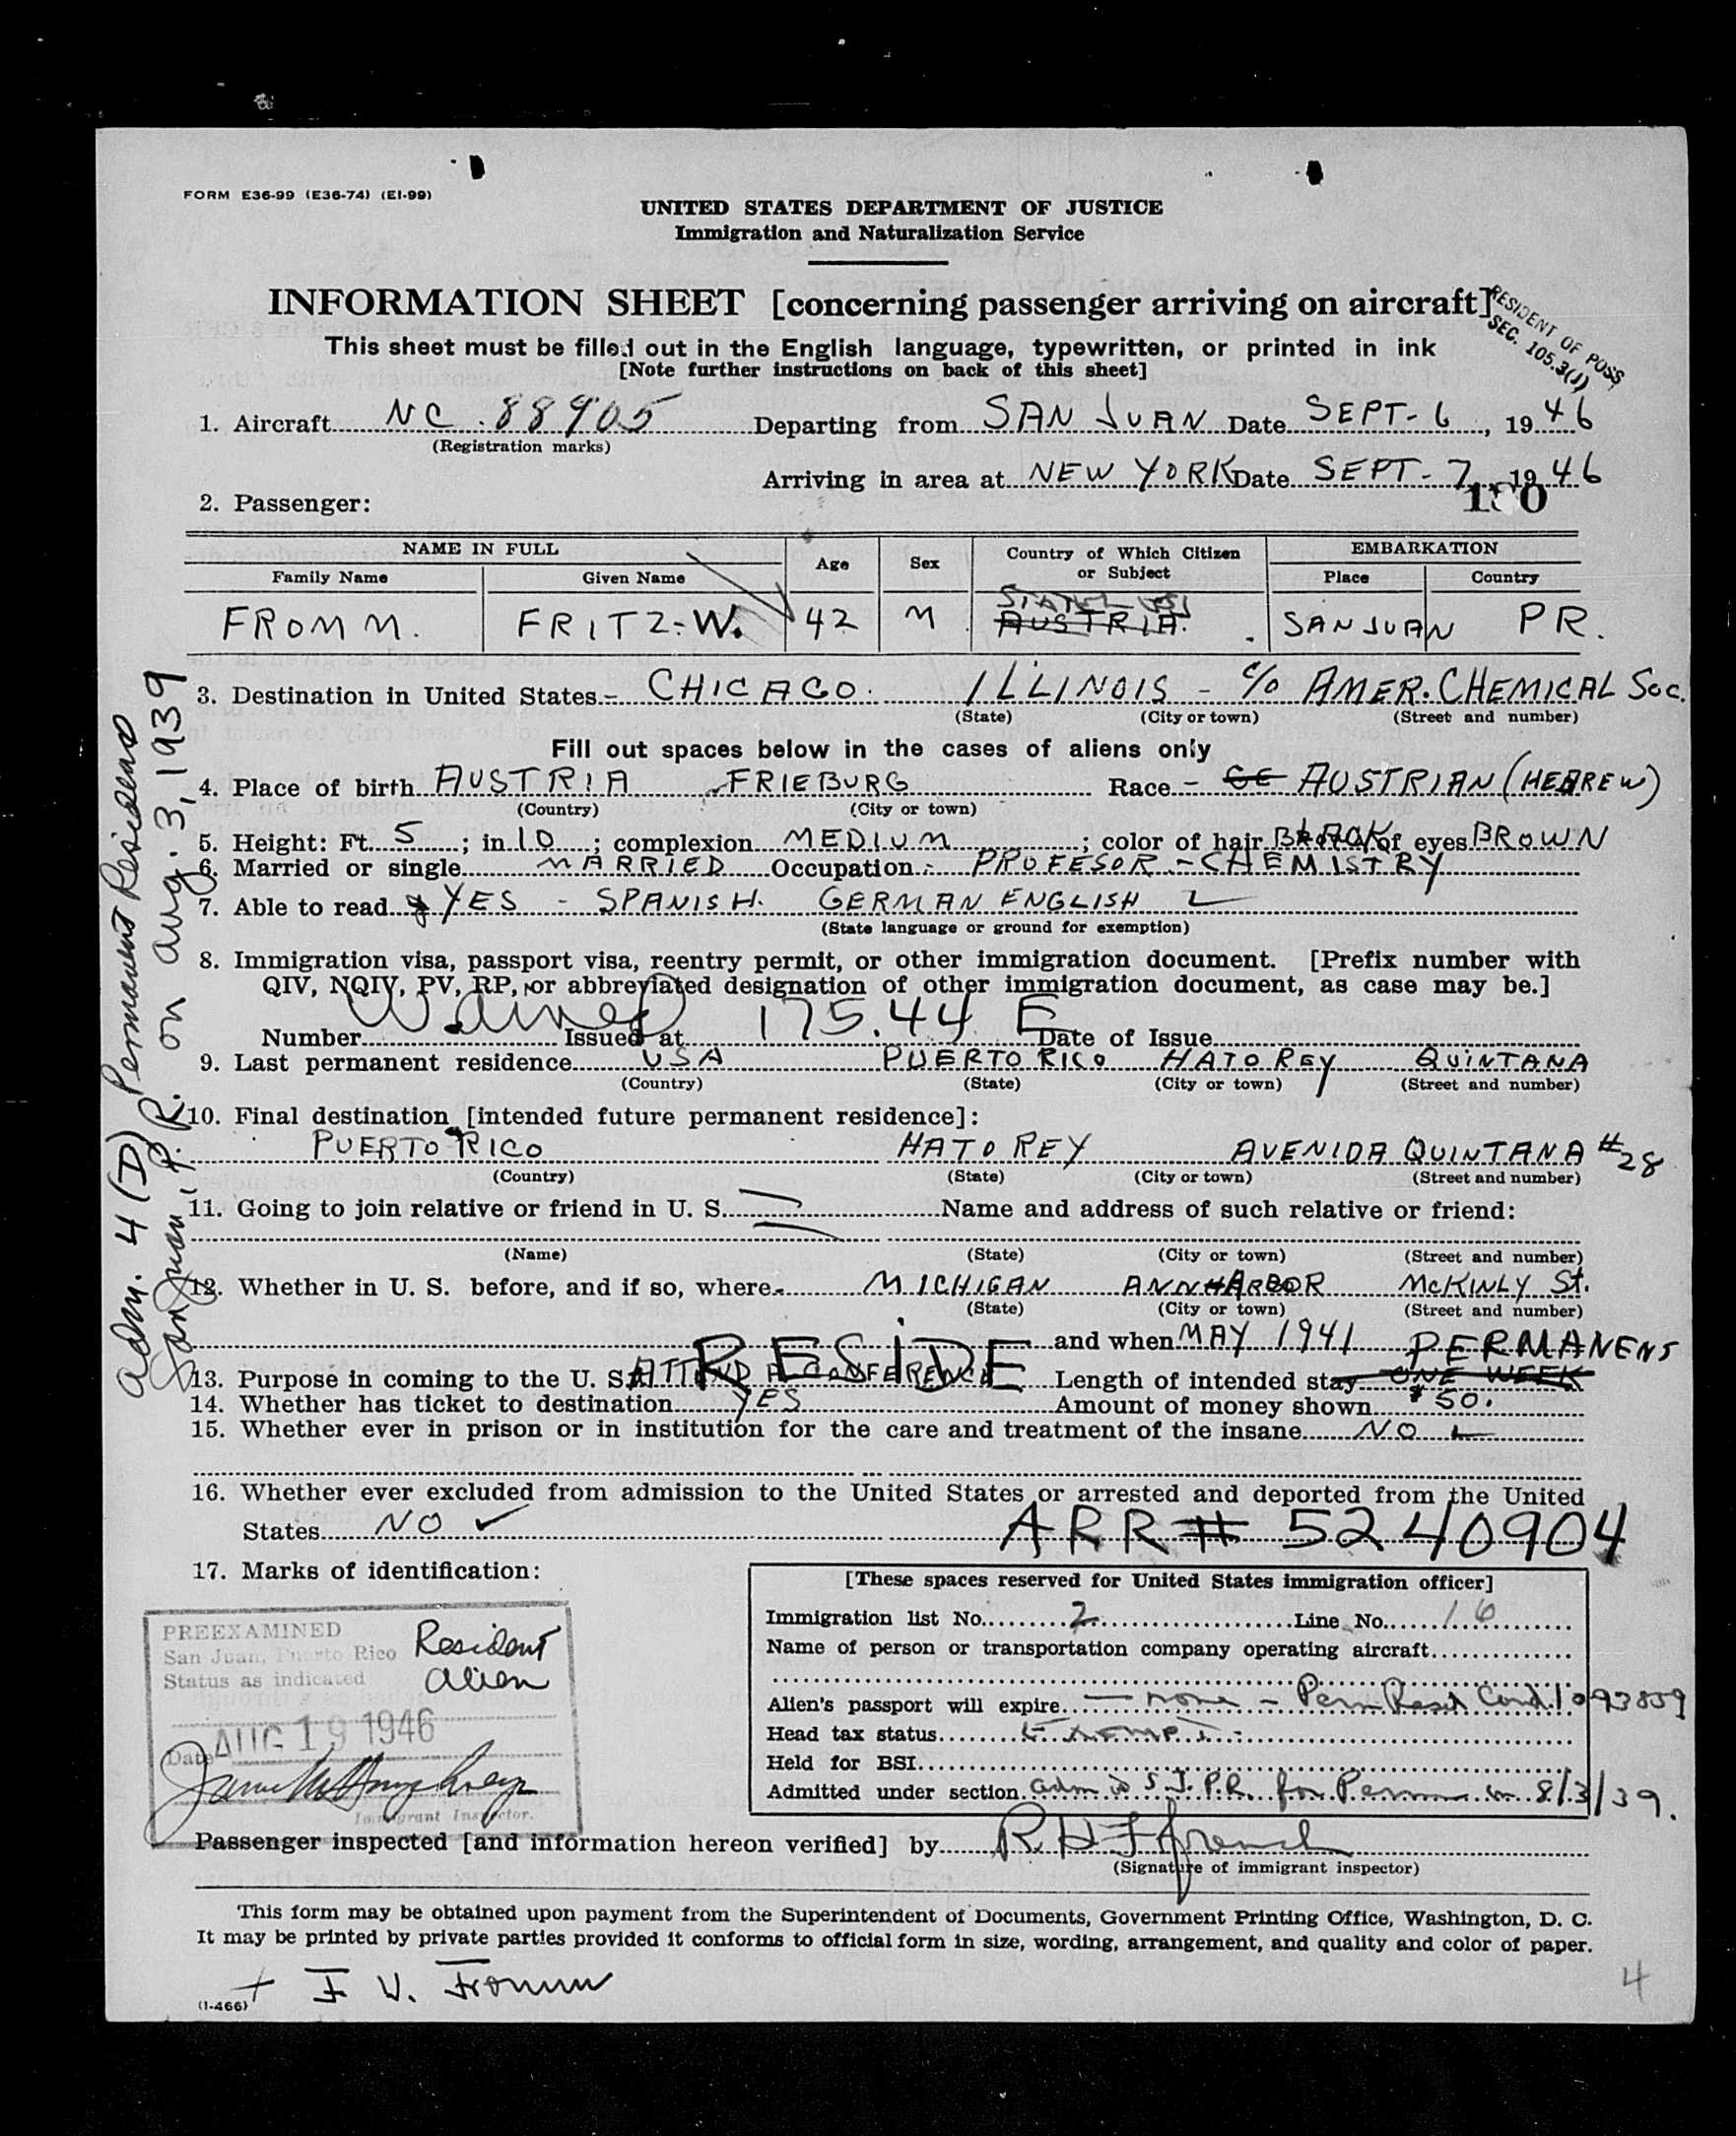 FORM E36-99 (E36-74) (EI-99)
UNITED STATES DEPARTMENT OF JUSTICE
Immigration and Naturalization Service
INFORMATION SHEET [concerning passenger arriving on aircraft]
RESIDENT OF POSS
SEC. 105.3(J)
This sheet must be filled out in the English language, typewritten, or printed in ink
[Note further instructions on back of this sheet]
1. Aircraft NC 88905 Departing from SAN JUAN Date SEPT-6, 1946
(Registration marks)
Arriving in area at NEW YORK Date SEPT-7, 1946
2. Passenger:
NAME IN FULL Age Sex Country of Which Citizen or Subject EMBARKATION
Family Name Given Name Place Country
FROMM. FRITZ-W. 42 M AUSTRIA. SAN JUAN PR.
3. Destination in United States- CHICAGO. ILLINOIS - c/o AMER. CHEMICAL Soc.
(State) (City or town) (Street and number)
Fill out spaces below in the cases of aliens only
4. Place of birth AUSTRIA FRIEBURG Race - GE AUSTRIAN (HEBREW)
(Country) (City or town)
5. Height: Ft. 5; in 10; complexion MEDIUM; color of hair BLACK of eyes BROWN
6. Married or single MARRIED Occupation PROFESOR-CHEMISTRY
7. Able to read YES - SPANISH. GERMAN ENGLISH
(State language or ground for exemption)
8. Immigration visa, passport visa, reentry permit, or other immigration document. [Prefix number with
QIV, NQIV, PV, RP, or abbreviated designation of other immigration document, as case may be.]
Number Waived Issued at 175.44 E Date of Issue
9. Last permanent residence USA PUERTO RICO HATO REY QUINTANA
(Country) (State) (City or town) (Street and number)
10. Final destination [intended future permanent residence]:
PUERTO RICO HATO REY AVENIDA QUINTANA #28
(Country) (State) (City or town) (Street and number)
11. Going to join relative or friend in U. S. Name and address of such relative or friend:
(Name) (State) (City or town) (Street and number)
12. Whether in U. S. before, and if so, where- MICHIGAN ANN HARBOR McKINLY St.
(State) (City or town) (Street and number)
and when MAY 1941 PERMANENS
13. Purpose in coming to the U. S. ATTEND A CONFERENCE RESIDE Length of intended stay ONE WEEK
14. Whether has ticket to destination YES Amount of money shown $50.
15. Whether ever in prison or in institution for the care and treatment of the insane NO
16. Whether ever excluded from admission to the United States or arrested and deported from the United
States NO ✓ ARR# 5240904
17. Marks of identification:
[These spaces reserved for United States immigration officer]
Immigration list No. 2 Line No. 16
Name of person or transportation company operating aircraft
Alien's passport will expire - none - Perm Resid Card 1093859
Head tax status Exempt
Held for BSI
Admitted under section adm to S.J.P.R. for Perm on 8/3/39.
PREEXAMINED
San Juan, Puerto Rico
Status as indicated
Resident
Alien
Date AUG 19 1946
Immigrant Inspector.
Passenger inspected [and information hereon verified] by
(Signature of immigrant inspector)
This form may be obtained upon payment from the Superintendent of Documents, Government Printing Office, Washington, D. C.
It may be printed by private parties provided it conforms to official form in size, wording, arrangement, and quality and color of paper.
(I-466)
+ F W. Fromm
4
adm. 4(D) Permanent Residence
San Juan, P.R. on Aug. 3, 1939